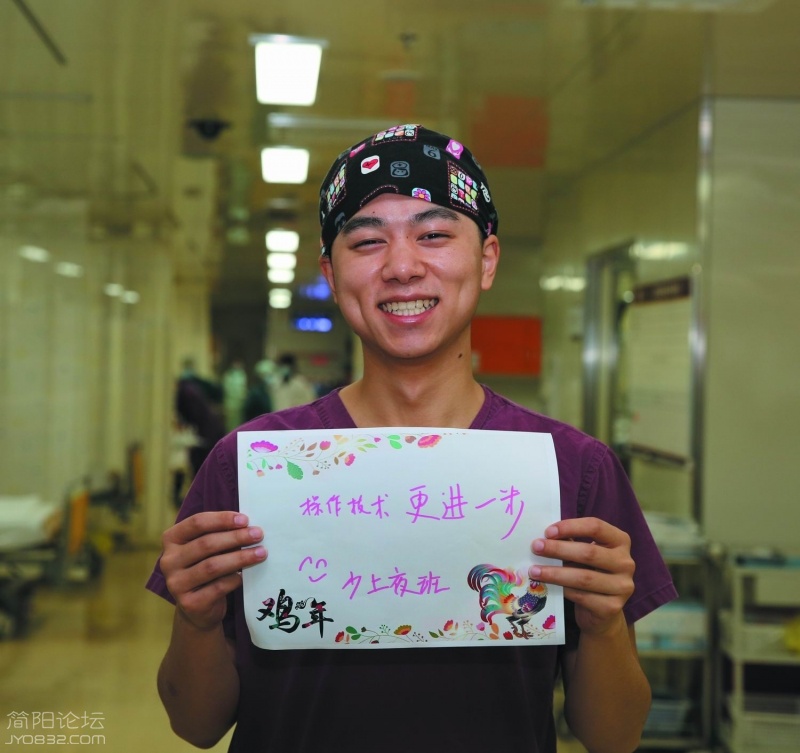 操作技术 更进一步
少上夜班
鸡年
简阳论坛
JY0832.com